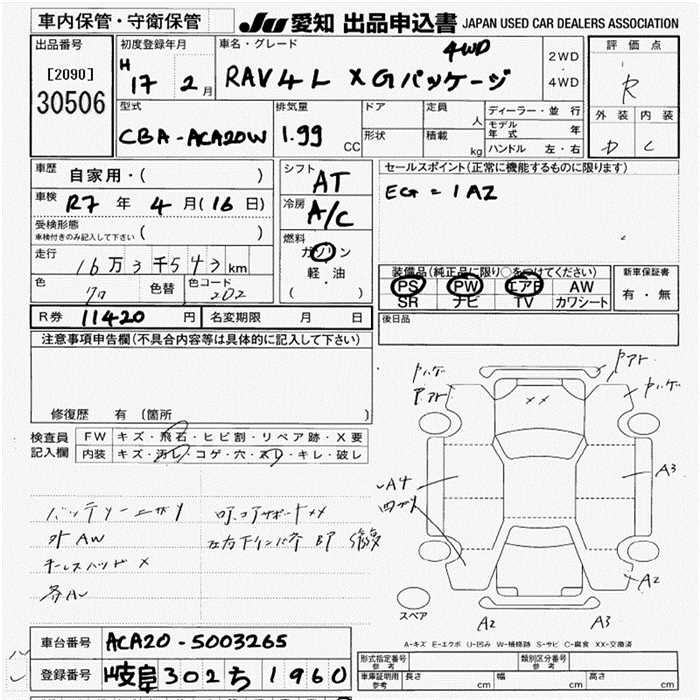 車内保管・守衛保管
JU 愛知 出品申込書 JAPAN USED CAR DEALERS ASSOCIATION
出品番号
[2090]
30506
初度登録年月
H 17 2月
車名・グレード
4WD
RAV4L XGパッケージ
2WD
4WD
評価点
R
外装 内装
D C
型式
CBA-ACA20W
排気量
1.99 CC
ドア
形状
定員 人
積載 kg
ディーラー・並行
モデル年式 年
ハンドル 左・右
車歴 自家用・( )
車検 R7年 4月(16日)
受検形態
車検付きのみ記入して下さい ( )
走行 16万3千543km
色 色替 色コード 202
シフト AT
冷房 A/C
燃料
ガソリン
軽・油
( )
セールスポイント(正常に機能するものに限ります)
EG=1AZ
装備品(純正品に限り○をつけてください)
PS PW エアB AW
SR ナビ TV カワシート
新車保証書
有・無
R券 11420円 名変期限 月 日
後日品
注意事項申告欄(不具合内容等は具体的に記入して下さい)
修復歴 有(箇所 )
検査員記入欄
FW キズ・飛石・ヒビ割・リペア跡・X要
内装 キズ・汚レ・コゲ・穴・スレ・キレ・破レ
外AW
キーレスハッド X
XX
A4
A3
A2
A2
A3
スペア
A-キズ E-エクボ U-凹み W-補修跡 S-サビ C-腐食 XX-交換済
車台番号 ACA20-5003265
登録番号 岐阜302ち1960
形式指定番号 参考
類別区分番号 参考
車庫証明用 参考 長さ cm 幅 cm 高さ cm